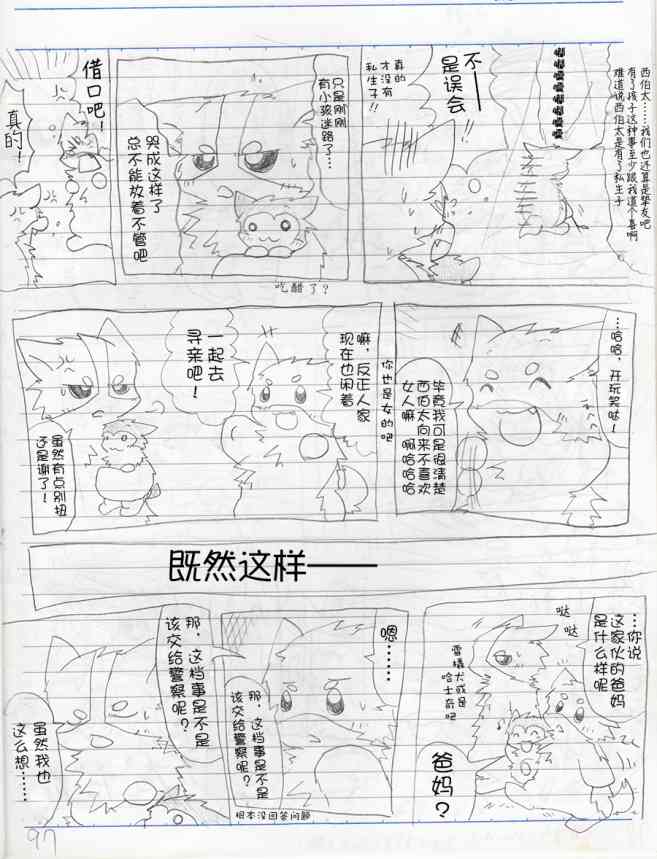 西伯太……我们也还算是挚友吧
有了孩子这种事至少跟我道个喜啊
难道说西伯太是有了私生子
不——
是误会
真的
才没有
私生子!!
只是刚刚
有小孩迷路了…
哭成这样了
总不能放着不管吧
借口吧!
真的!
吃醋了?
…哈哈,开玩笑哒!
毕竟我可是很清楚
西伯太向来不喜欢
女人嘛 啊哈哈哈
你也是女的吧
嘛,反正人家
现在也闲着
一起去
寻亲吧!
虽然有点别扭
还是谢了!
既然这样——
…你说
这家伙的爸妈
是什么样呢
哒
哒
雪橇犬或是
哈士奇吧
爸妈?
嗯……
那,这档事是不是
该交给警察呢?
根本没回答问题
那,这档事是不是
该交给警察呢?
虽然我也
这么想……
97